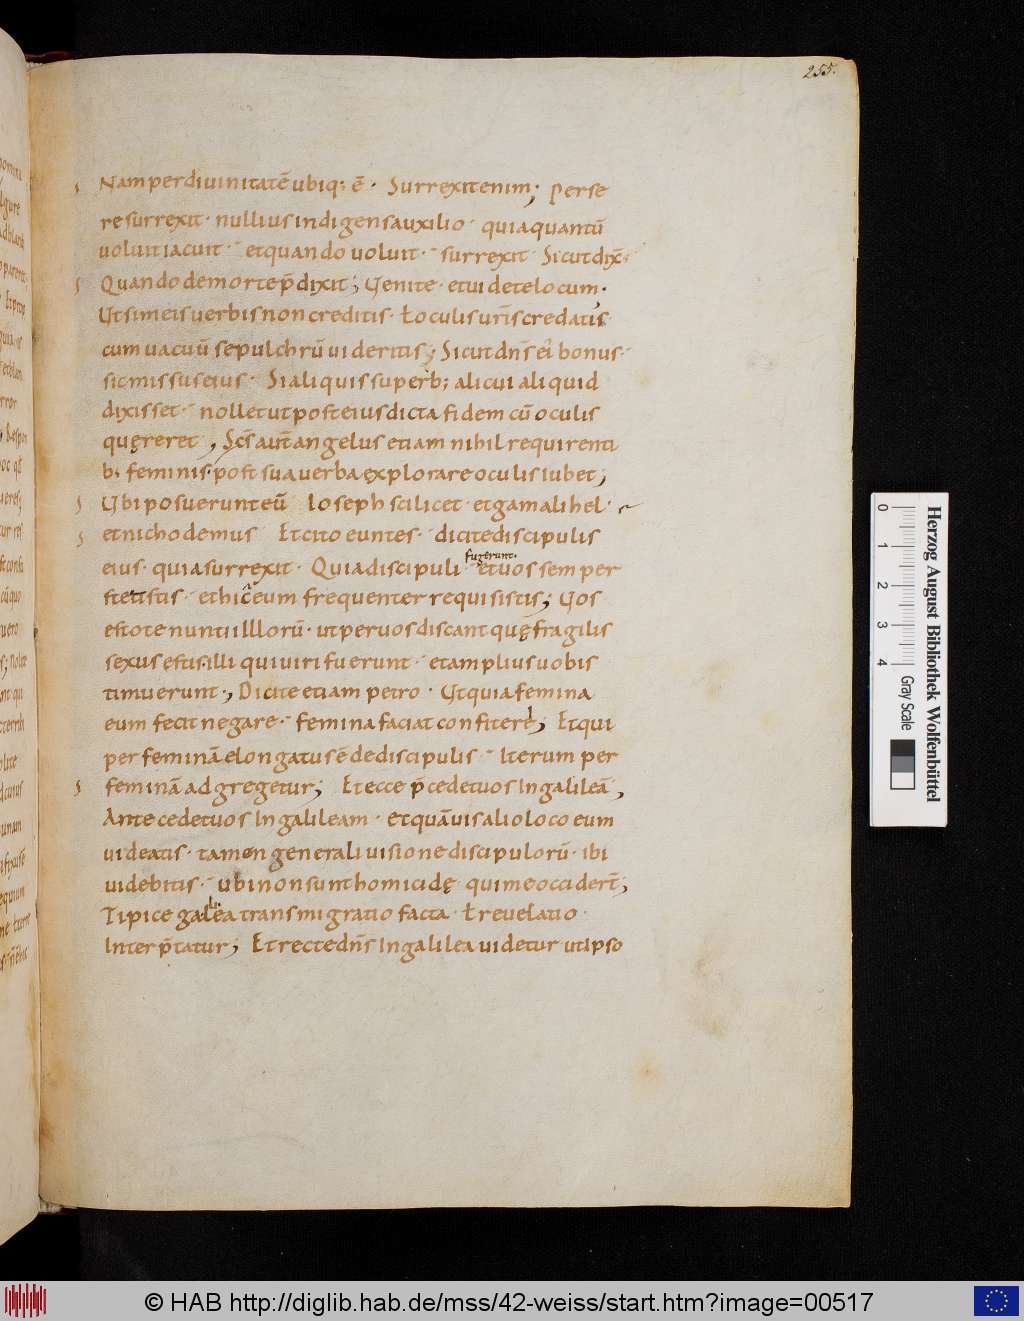 255.
Nam per diuinitatē ubiq; ē· Surrexit enim; per se
re surrexit· nullius indigens auxilio· quia quantū
uoluit iacuit· et quando uoluit· surrexit Sicut dix̄·
Quando de morte p̄dixit; Uenite· et uidete locum·
Ut si meis uerbis non creditis· ł oculis ur̄is credatis·
cum uacuū sepulchrū uideritis; Sicut dn̄s ei bonus·
sic missus eius· Si aliquis superb; alicui aliquid
dixisset· nollet ut post eius dicta fidem cū oculis
quęreret, Sc̄s aut̄ angelus etiam nihil requirenti
b· feminis· post sua uerba explorare oculis iubet;
Ubi posuerunt eū Ioseph scilicet· et gamalihel·
et nichodemus Et cito euntes· dicite discipulis
fugerunt·
eius· quia surrexit· Quia discipuli et uos semper
stetistis· et hic eum frequenter requisistis; Uos
estote nuntii illorū· ut per uos discant quę fragilis
sexus estis· illi qui uiri fuerunt· et amplius uobis
timuerunt·, Dicite etiam petro· Ut quia femina
eum fecit negare· femina faciat confiteri; Et qui
per feminā elongatus ē de discipulis· Iterum per
feminā adgregetur; Et ecce p̄cedet uos In galileā,
Antecedet uos In galileam· et quāuis alio loco eum
uideatis· tamen generali uisione discipulorū· ibi
uidebitis· ubi non sunt homicidę· qui me occidert̄;
Tipice galilea transmigratio facta· ł reuelatio·
Interp̄tatur; Et recte dn̄s In galilea uidetur ut ipso
0 1 2 3 4
Gray Scale
Herzog August Bibliothek Wolfenbüttel
© HAB http://diglib.hab.de/mss/42-weiss/start.htm?image=00517